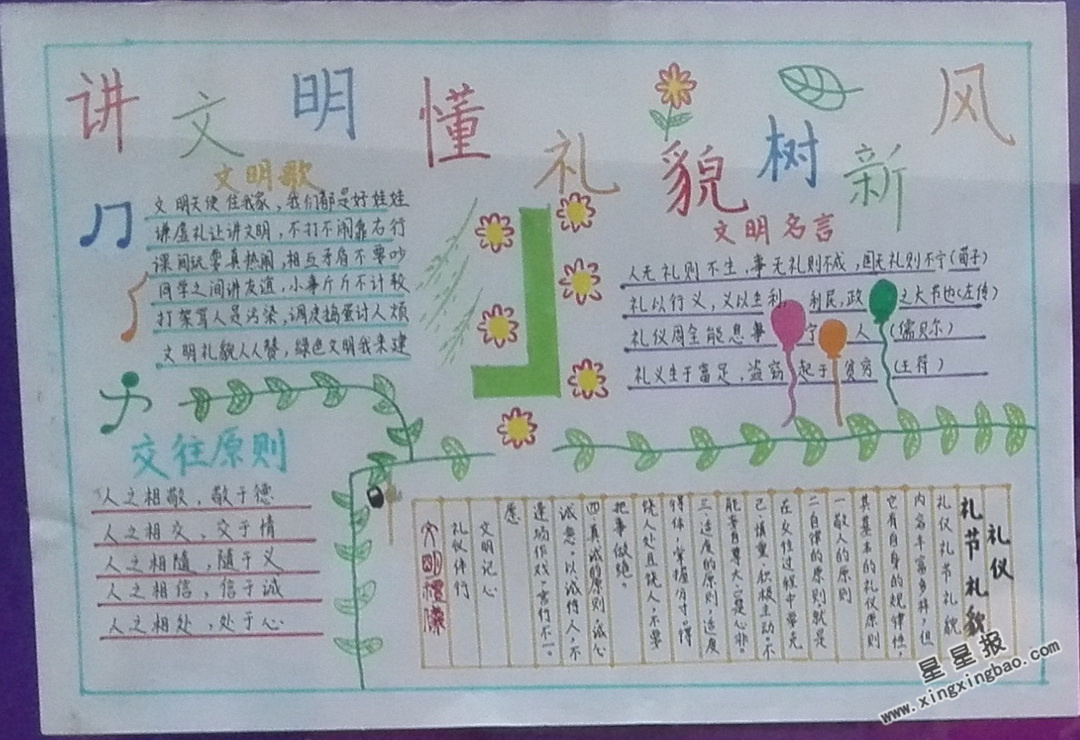 讲文明懂礼貌树新风
文明歌
文明天使住我家，我们都是好娃娃
谦虚礼让讲文明，不打不闹靠右行
课间玩耍真热闹，相互矛盾不要吵
同学之间讲友谊，小事斤斤不计较
打架骂人是污染，调皮捣蛋讨人烦
文明礼貌人人赞，绿色文明我来建
文明名言
人无礼则不生，事无礼则不成，国无礼则不宁(荀子)
礼以行义，义以生利，利民，政之大节也(左传)
礼仪周全能息事宁人(儒贝尔)
礼义生于富足，盗窃起于贫穷(王符)
交往原则
人之相敬，敬于德
人之相交，交于情
人之相随，随于义
人之相信，信于诚
人之相处，处于心
礼仪
礼节礼貌
礼仪礼节礼貌
内容丰富多样，但
它有自身的规律性，
其基本的礼仪原则
一敬人的原则
二自律的原则，就是
在交往过程中要克
己、慎重、积极主动。不
能妄自尊大，口是心非。
三适度的原则，适度
得体，掌握分寸。得
饶人处且饶人，不要
把事做绝。
四真诚的原则，诚心
诚意。以诚待人，不
逢场作戏，言行不一。
愿
文明记心
礼仪伴行
文明
星星报
www.xingxingbao.com